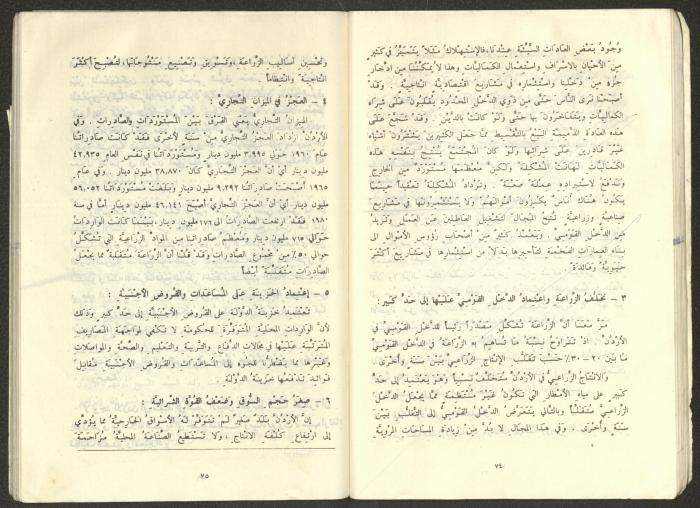 وجود بعض العادات السيئة عندنا، فالاستهلاك مثلاً يتميز في كثير
من الأحيان بالاسراف واستعمال الكماليات وهذا لا يمكننا من ادخار
جزء من دخلنا واستثماره في مشاريع اقتصادية انتاجية . وقد
أصبحنا نرى الناس حتى من ذوي الدخل المحدود يقبلون على شراء
الكماليات ويتفاخرون بها حتى ولو كانت بالدين . وقد شجع على
هذه العادة الذميمة البيع بالتقسيط مما جعل الكثيرين يشترون أشياء
غير قادرين على شرائها ولو كان المجتمع ينتج بنفسه هذه
الكماليات لهانت المشكلة ولكن معظمها مستورد من الخارج
وندفع لاستيراده عملة صعبة . وتزداد المشكلة تعقيداً حينما
يكون هناك أناس يكنزون أموالهم ولا يستثمرونها في مشاريع
صناعية وزراعية تتيح المجال لتشغيل العاطلين عن العمل وتزيد
من الدخل القومي . ويعمد كثير من أصحاب رؤوس الأموال الى
بناء العمارات الفخمة لتأجيرها بدلاً من استثمارها في مشاريع أكثر
حيوية وفائدة .
٣ – تخلف الزراعة واعتماد الدخل القومي عليها إلى حد كبير :
مر معنا أن الزراعة تشكل مصدراً رئيساً للدخل القومي في
الأردن . اذ تتراوح نسبة ما تساهم به الزراعة في الدخل القومي
ما بين ٢٠ – ٣٠٪ حسب تقلب الإنتاج الزراعي بين سنة وأخرى .
والانتاج الزراعي في الأردن متخلف نسبياً وهو يعتمد إلى حد
كبير على مياه الأمطار التي تكون غير منتظمة مما يجعل الدخل
الزراعي متقلباً وبالتالي يتعرض الدخل القومي إلى التقلب بين
سنة وأخرى . وفي هذا المجال لا بد من زيادة المساحات المروية
٧٤
وتحسين أساليب الزراعة، وتسويق وتصنيع منتوجاتها، لتصبح أكثر
انتاجية وانتظاماً
٤ – العجز في الميزان التجاري :
الميزان التجاري يعني الفرق بين المستوردات والصادرات . وفي
الأردن ازداد العجز التجاري من سنة لأخرى فقد كانت صادراتنا
عام ١٩٦٠ حوالي ٣،٩٩٥ مليون دينار ومستورداتنا في نفس العام ٤٢،٩٣٥
مليون دينار أي أن العجز التجاري كان ٣٨،٨٧٠ مليون دينار . وفي عام
١٩٦٥ أصبحت صادراتنا ٩،٢٩٢ مليون دينار وبلغت مستورداتنا ٥٦،٠٥٢
مليون دينار أي أن العجز التجاري أصبح ٤٦،١٤١ مليون دينار أما في سنة
١٩٨٠ فقد ارتفعت الصادرات الى ١٧٦ مليون دينار، بينما كانت الواردات
حوالي ٧١٥ مليون دينار ومعظم صادراتنا من المواد الزراعية التي تشكل
حوالي ٥٠٪ من مجموع الصادرات وقد قلنا أن الزراعة متقلبة مما يجعل
الصادرات متقلبة أيضاً
٥ – إعتماد الخزينة على المساعدات والقروض الأجنبية :
تعتمد خزينة الدولة على القروض الأجنبية إلى حد كبير وذلك
لأن الواردات المحلية المتوفرة للحكومة لا تكفي لمواجهة المصاريف
المترتبة عليها في مجالات الدفاع والتربية والتعليم والصحة والمواصلات
وغيرها مما يضطرنا للجوء إلى المساعدات والقروض الأجنبية مقابل
فوائد تدفعها خزينة الدولة .
٦ – صغر حجم السوق وضعف القوة الشرائية :
إن الأردن بلد صغير لم تتوفر له الأسواق الخارجية مما يؤدي
إلى ارتفاع كلفة الانتاج ، ولا تستطيع الصناعة المحلية مزاحمة
٧٥